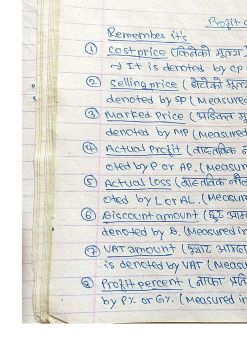 Profit
Remember it's
① cost price (किनेको मूल्य
→ It is denoted by CP
② Selling price (बेचेको मूल्य
denoted by SP (Measure
③ Marked Price (अङ्कित मू
denoted by MP (Measure
④ Actual Profit (वास्तविक
oted by P or AP. (Measur
⑤ Actual loss (वास्तविक नो
oted by L or AL. (Measur
⑥ Discount amount (छुट
denoted by D. (Measured in
⑦ VAT amount (
is denoted by VAT (Meas
⑧ Profit percent (नाफा प्रति
by P% or G%. (Measured i